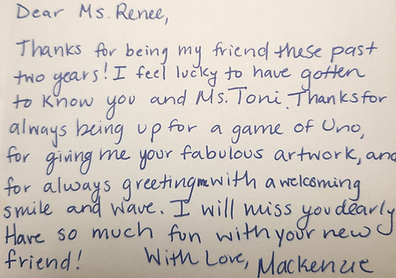 Dear Ms. Renee,
Thanks for being my friend these past
two years! I feel lucky to have gotten
to know you and Ms. Toni. Thanks for
always being up for a game of Uno,
for giving me your fabulous artwork, and
for always greeting me with a welcoming
smile and wave. I will miss you dearly
Have so much fun with your new
friend! With Love, Mackenzie